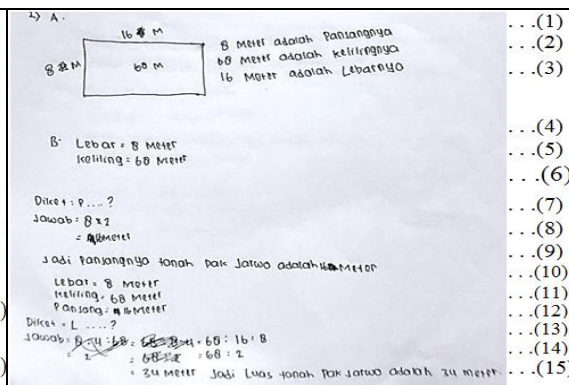 2) A.
16 M
8 M
60 M
8 Meter adalah Panjangnya
60 Meter adalah Kelilingnya
16 Meter adalah Lebarnya
B. Lebar = 8 Meter
Keliling = 68 Meter
Diket : P .... ?
Jawab = 8 x 2
= 16 Meter
Jadi Panjangnya tanah Pak Jarwo adalah 16 Meter
Lebar = 8 Meter
Keliling = 68 Meter
Panjang = 16 Meter
Diket = L .... ?
Jawab = 68 : 16 : 8
= 68 : 2
= 34 Meter Jadi Luas tanah Pak Jarwo adalah 34 meter.
...(1)
...(2)
...(3)
...(4)
...(5)
...(6)
...(7)
...(8)
...(9)
...(10)
...(11)
...(12)
...(13)
...(14)
...(15)
)
)